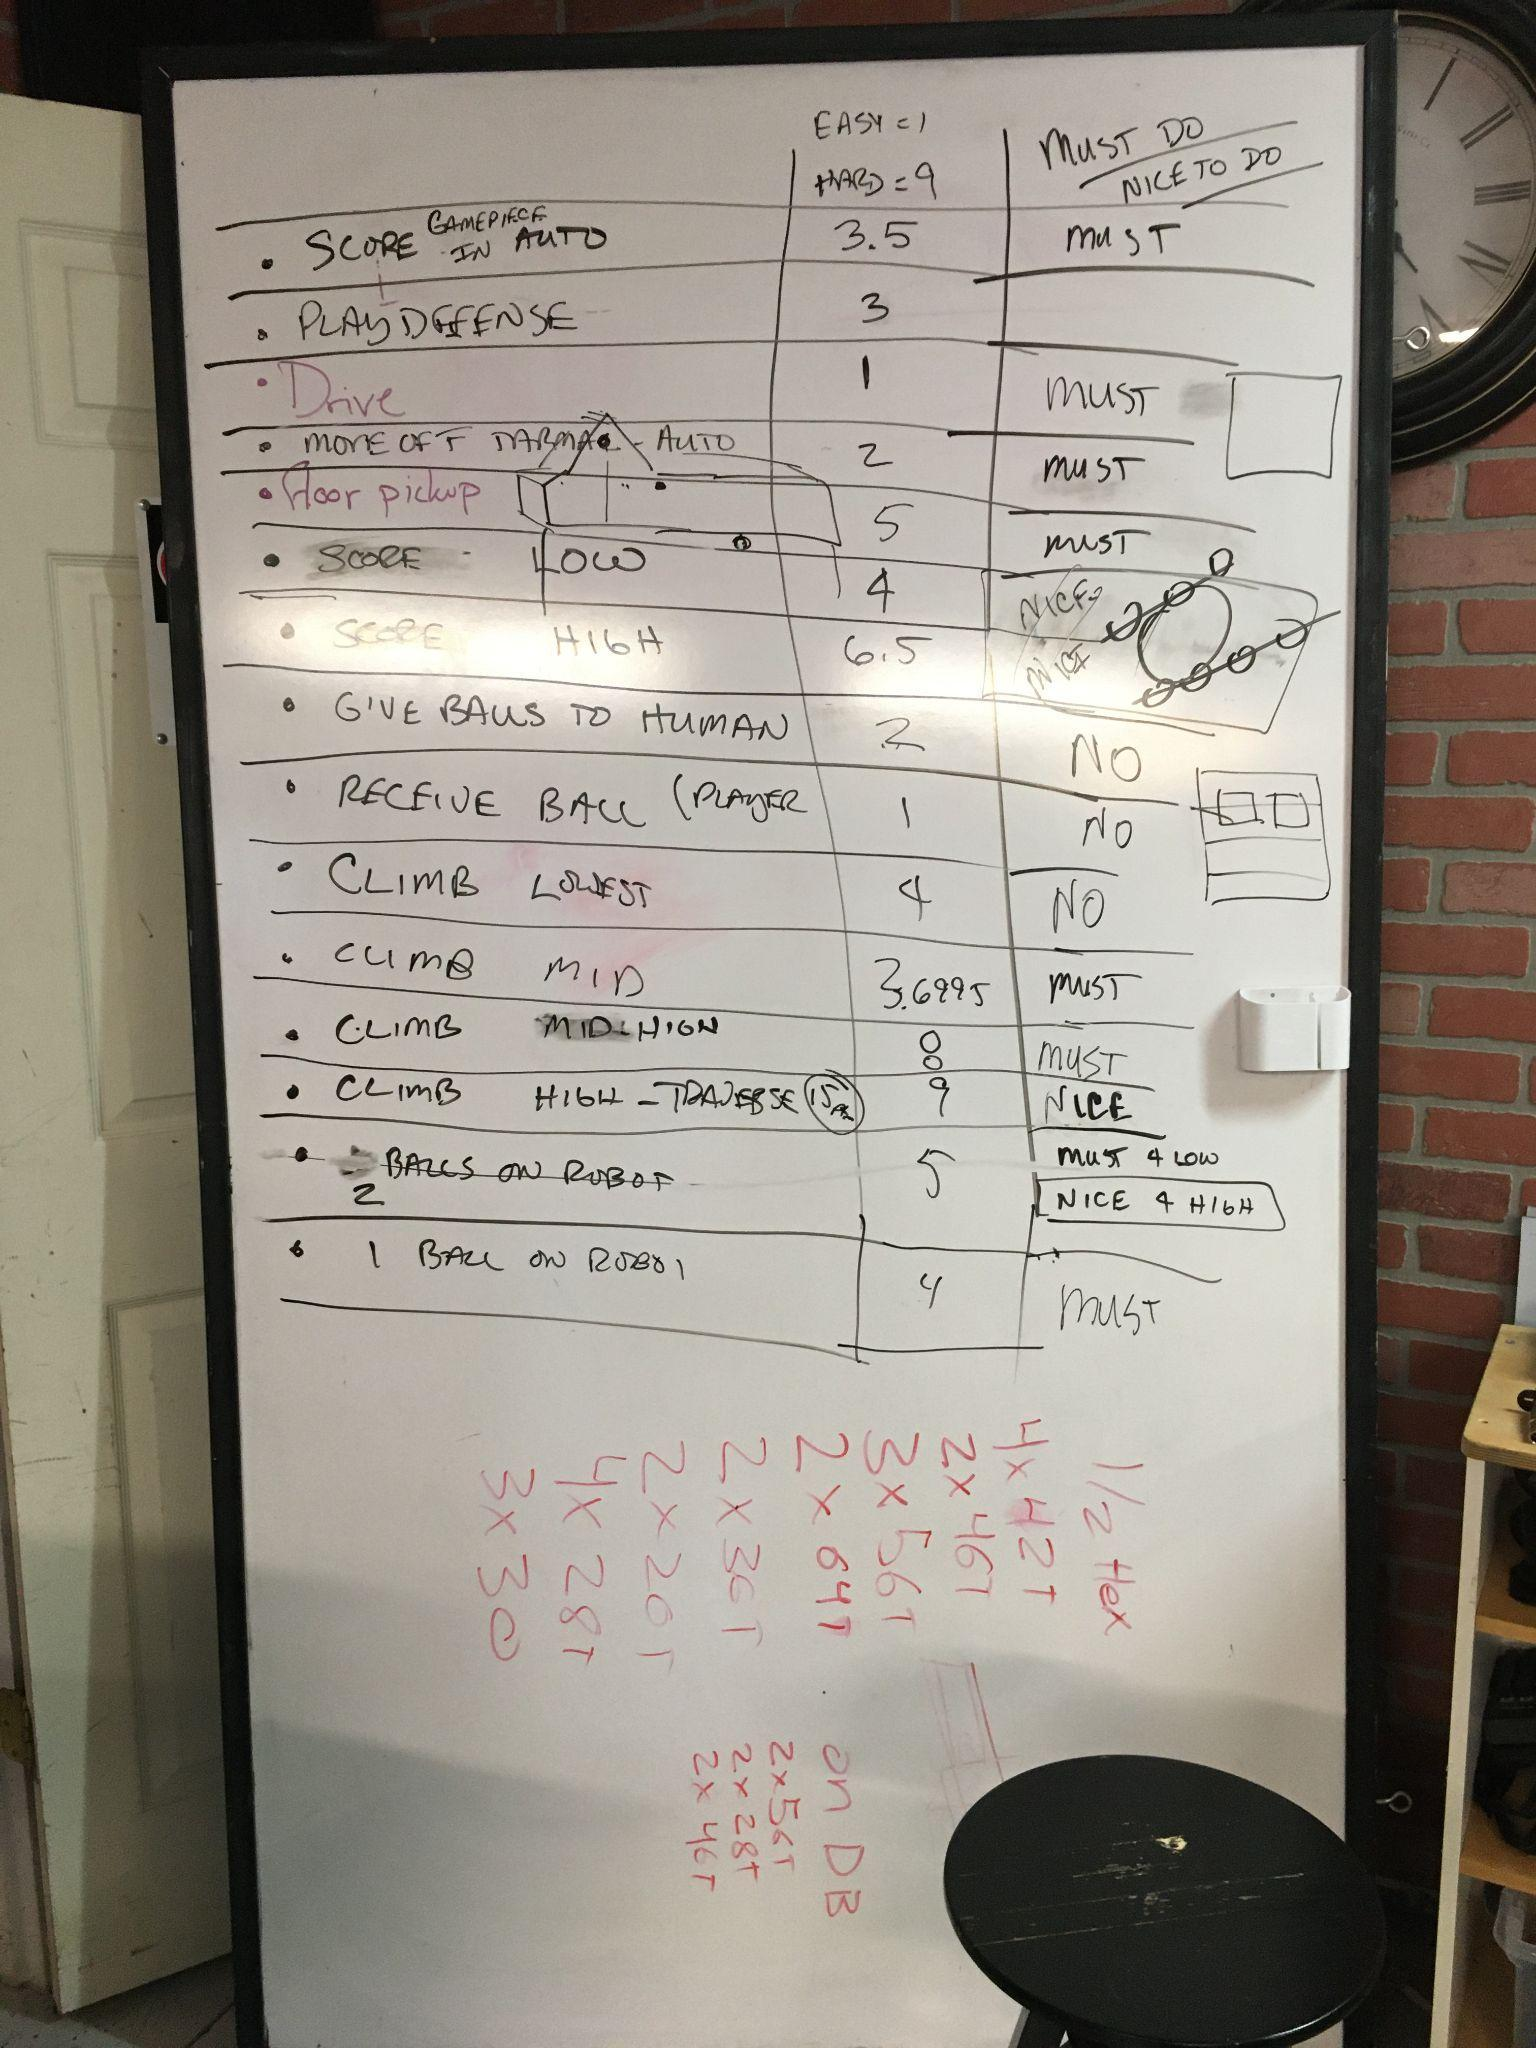 EASY = 1
HARD = 9
MUST DO
NICE TO DO
• SCORE GAMEPIECE IN AUTO 3.5 MUST
• PLAY DEFENSE 3
• Drive 1 MUST
• MOVE OFF TARMAC - AUTO 2 MUST
• floor pickup 5 MUST
• SCORE LOW 4 NICE
• SCORE HIGH 6.5 NICE
• GIVE BALLS TO HUMAN 2 NO
• RECEIVE BALL (PLAYER 1 NO
• CLIMB LOWEST 4 NO
• CLIMB MID 3.6995 MUST
• CLIMB MID-HIGH 8 MUST
• CLIMB HIGH - TRAVERSE 9 NICE
• 2 BALLS ON ROBOT 5 MUST 4 LOW
NICE 4 HIGH
• 1 BALL ON ROBOT 4 MUST
1/2 Hex
4x 42T
2x 46T
3x 56T
2x 64T
2x 36T
2x 26T
4x 28T
3x 30
on DB
2x56T
2x28T
2x46T